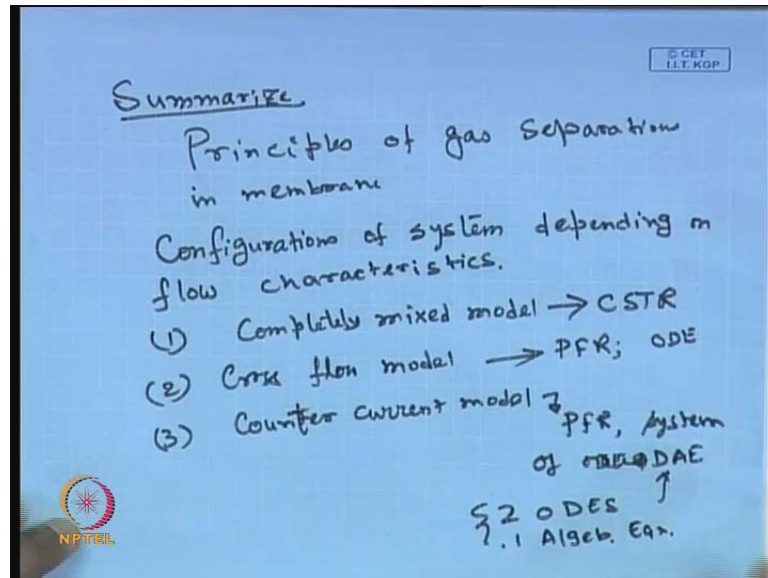 © CET
I.I.T. KGP
Summarize
Principles of gas separation
in membrane
Configurations of system depending on
flow characteristics.
(1) Completely mixed model → CSTR
(2) Cross flow model → PFR; ODE
(3) Counter current model → PFR, system
of DAE
{ 2 ODES
1 Algeb. Eqn.
NPTEL